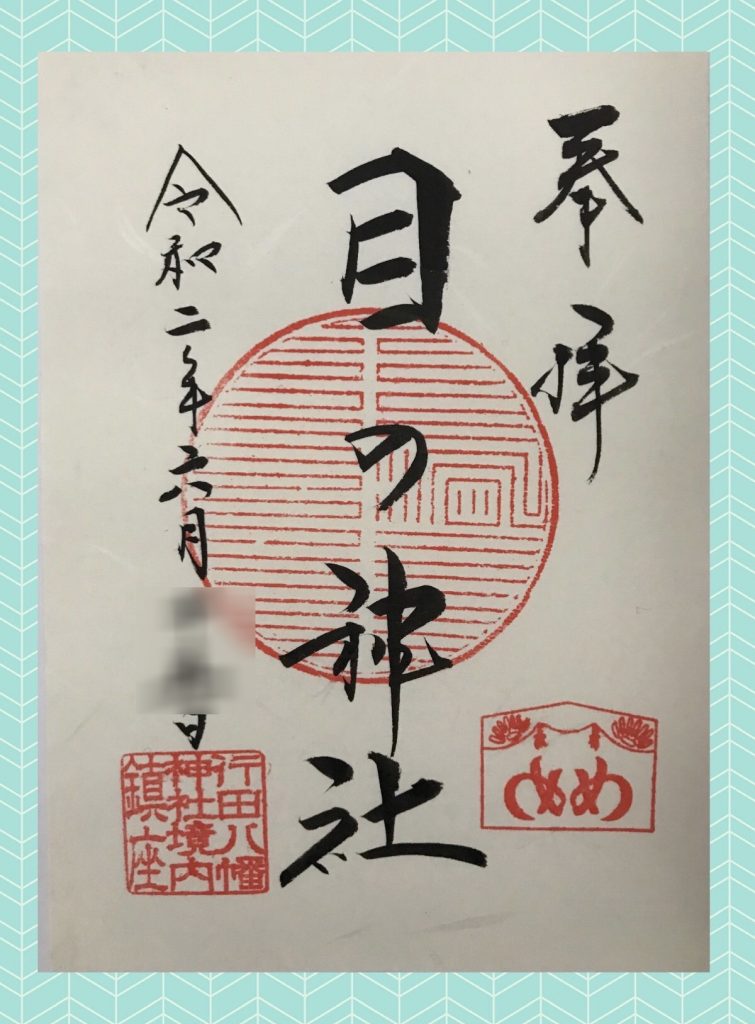 奉拝
目の神社
令和二年六月
日
行田八幡
神社境内
鎮座
めめ